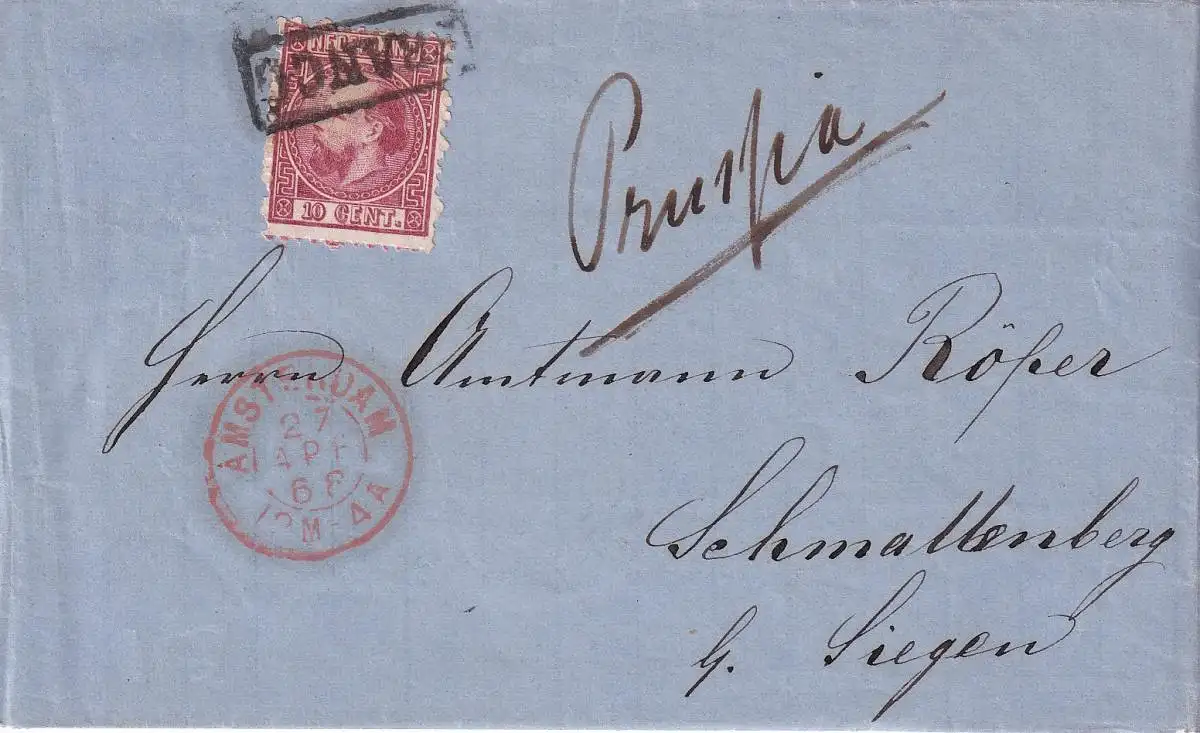 NEDERLAND
FRANCO
10 CENT.
Prussia
Herrn Amtmann Röper
AMSTERDAM
27
APR
68
12M-4A
Schmallenberg
b. Siegen